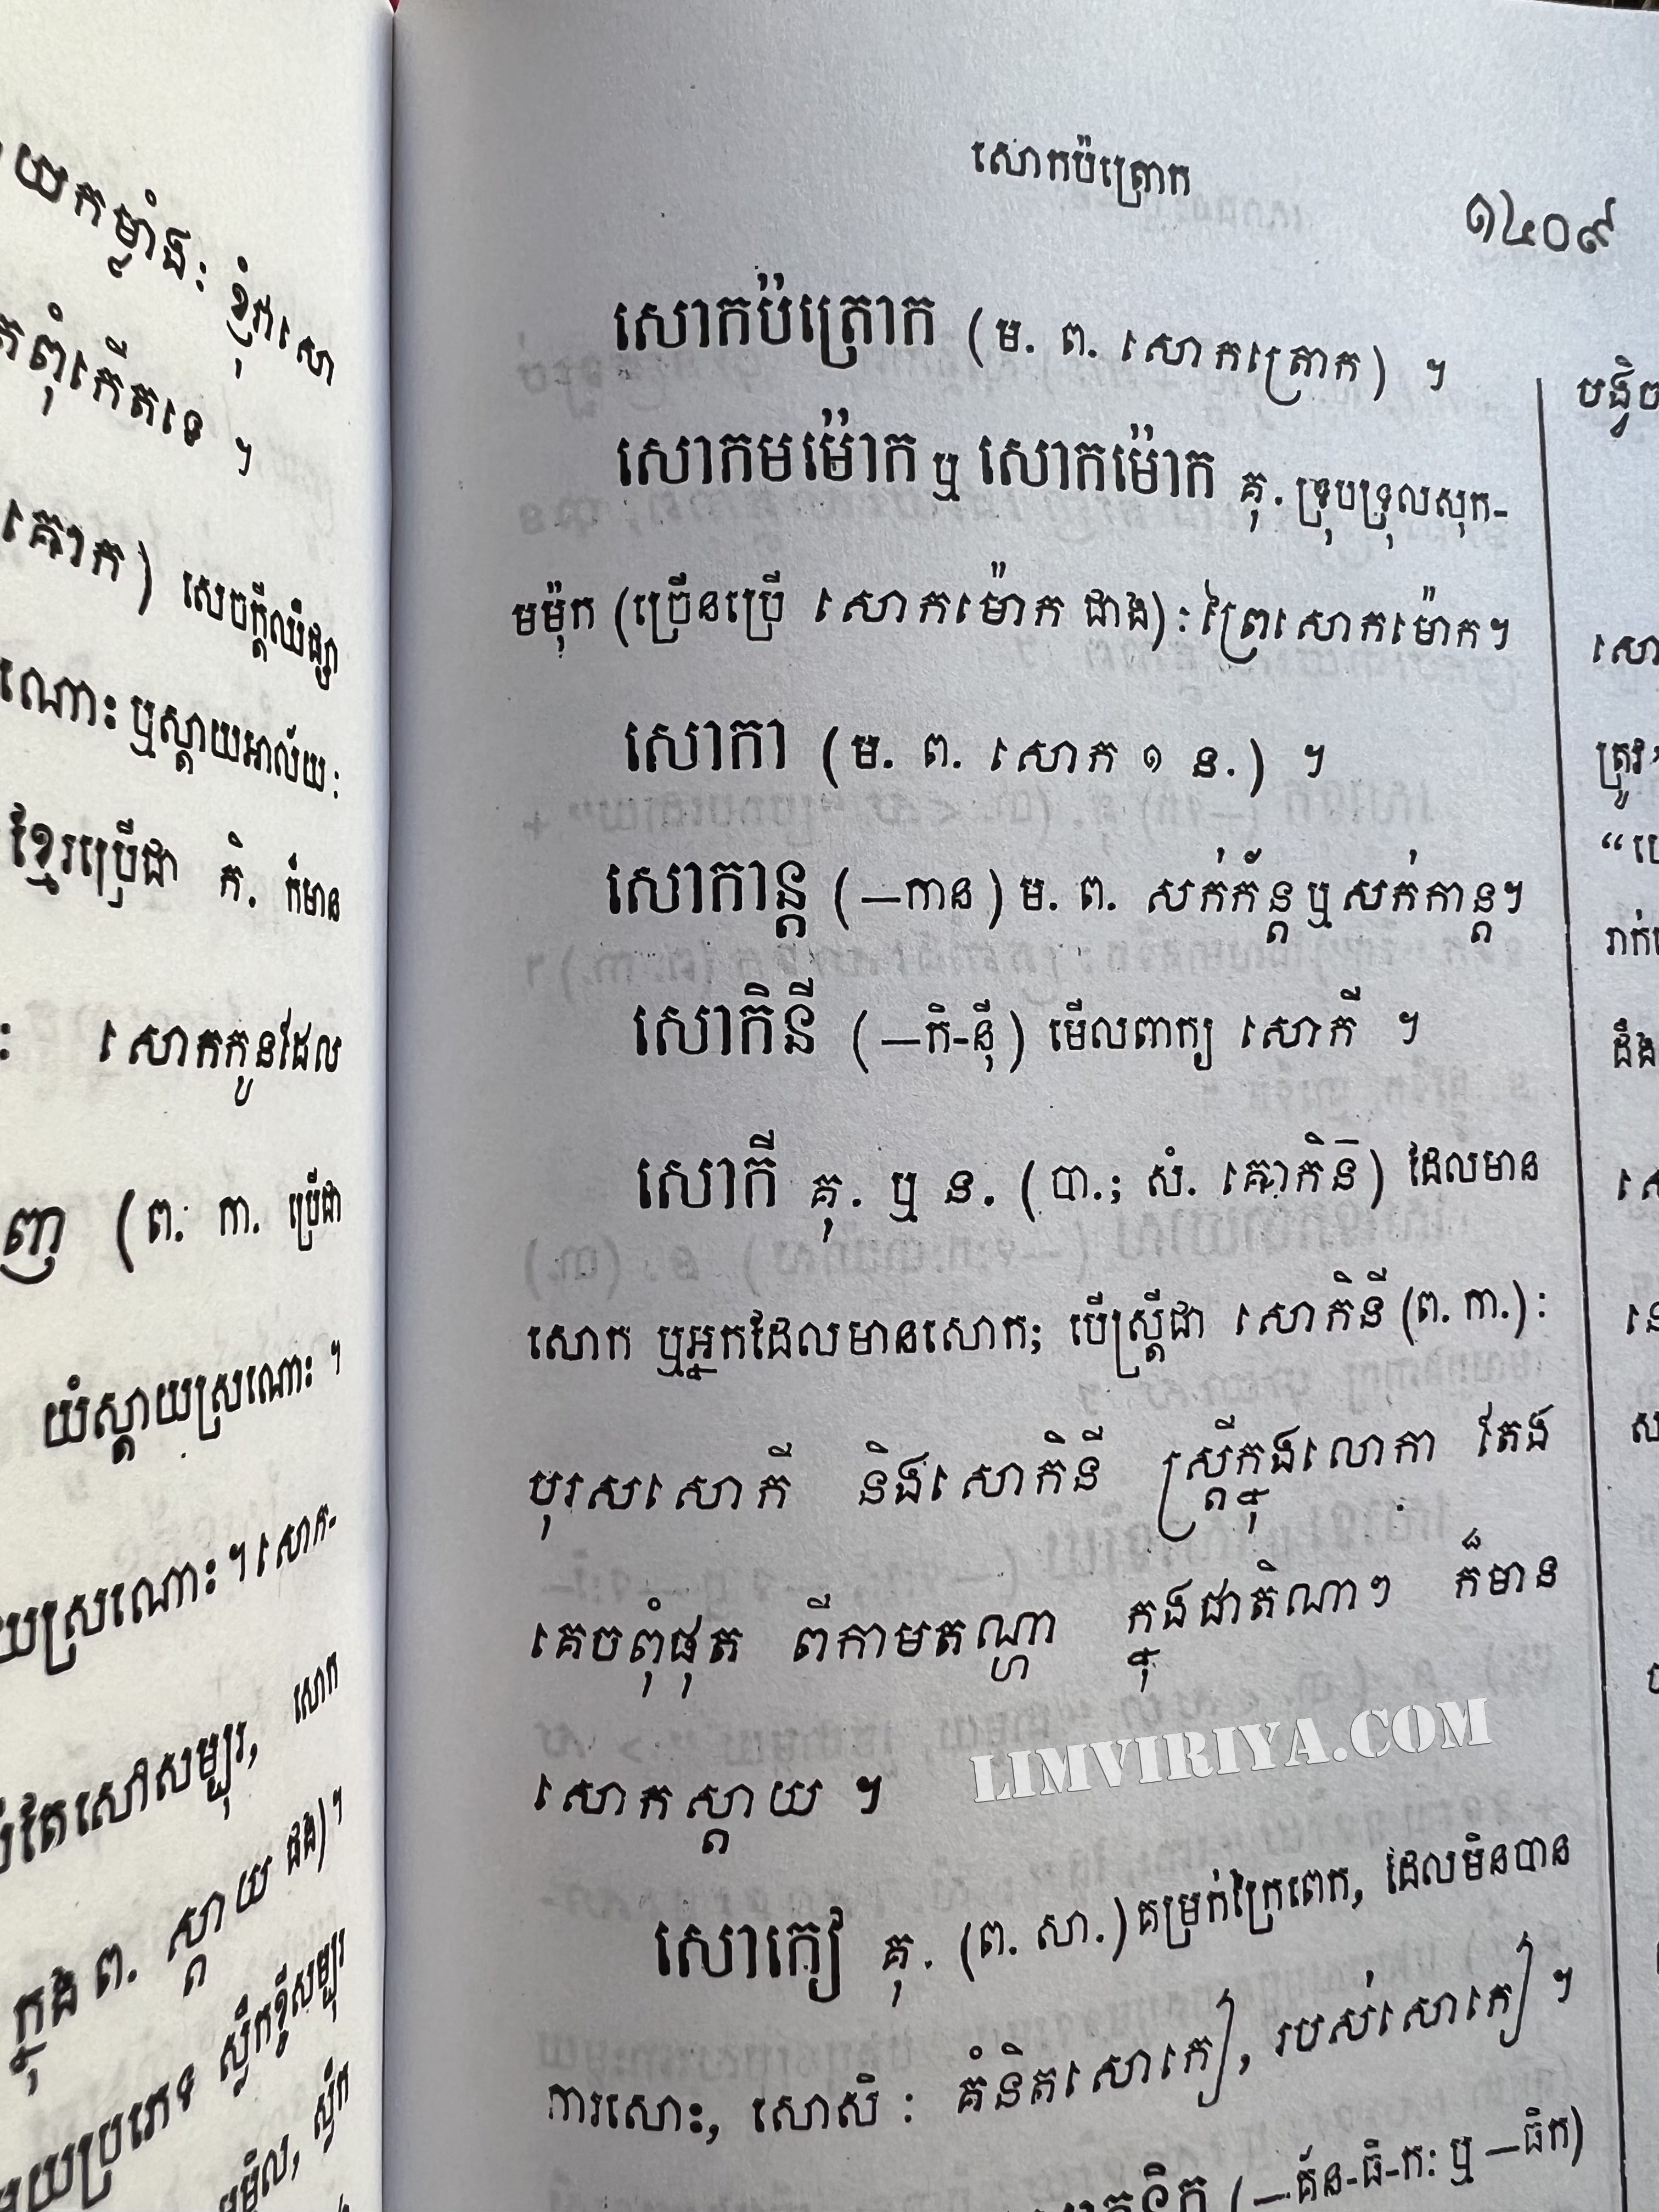 យកម្លាំង: ខ្ញុំកសោ
កពុំកើតទេ ។
គោក) សេចក្ដីឈឺផ្សា
ណោះ ឬស្ដាយអាល័យ:
ខ្មែរប្រើជា កិ. ក៏មាន
: សោកកូនដែល
ញ (ព. កា. ប្រើជា
យំស្ដាយស្រណោះ ។
យស្រណោះ ។ សោក-
តែសៅសម្បុរ, សោក
ក្នុង ព. ស្ដាយ ផង) ។
សោកប៉ត្រោក
១៤០៩
សោកប៉ត្រោក (ម. ព. សោកត្រោក) ។
សោកមម៉ោក ឬ សោកម៉ោក គុ. ទ្រុបទ្រុលសុក-
មម៉ុក (ច្រើនប្រើ សោកម៉ោក ជាង) : ព្រៃសោកម៉ោក។
សោកា (ម. ព. សោក ១ ន.) ។
សោកាន្ត (—កាន) ម. ព. សក់ក័ន្ត ឬ សក់កាន្ត។
សោកិនី (—កិ-នី) មើលពាក្យ សោកី ។
សោកី គុ. ឬ ន. (បា.; សំ. ឝោកិន៑) ដែលមាន
សោក ឬអ្នកដែលមានសោក; បើស្ត្រីជា សោកិនី (ព. កា.) :
បុរសសោកី និងសោកិនី ស្ត្រីក្នុងលោកា តែង
គេចពុំផុត ពីកាមតណ្ហា ក្នុងជាតិណាៗ ក៏មាន
សោកស្ដាយ ។
LIMVIRIYA.COM
សោកៀ គុ. (ព. សា.) គម្រក់ក្រៃពេក, ដែលមិនបាន
ការសោះ, សោសិ : គំនិតសោកៀ, របស់សោកៀ ។
(—គ័ន-ធិ-ក: ឬ —ធិក)